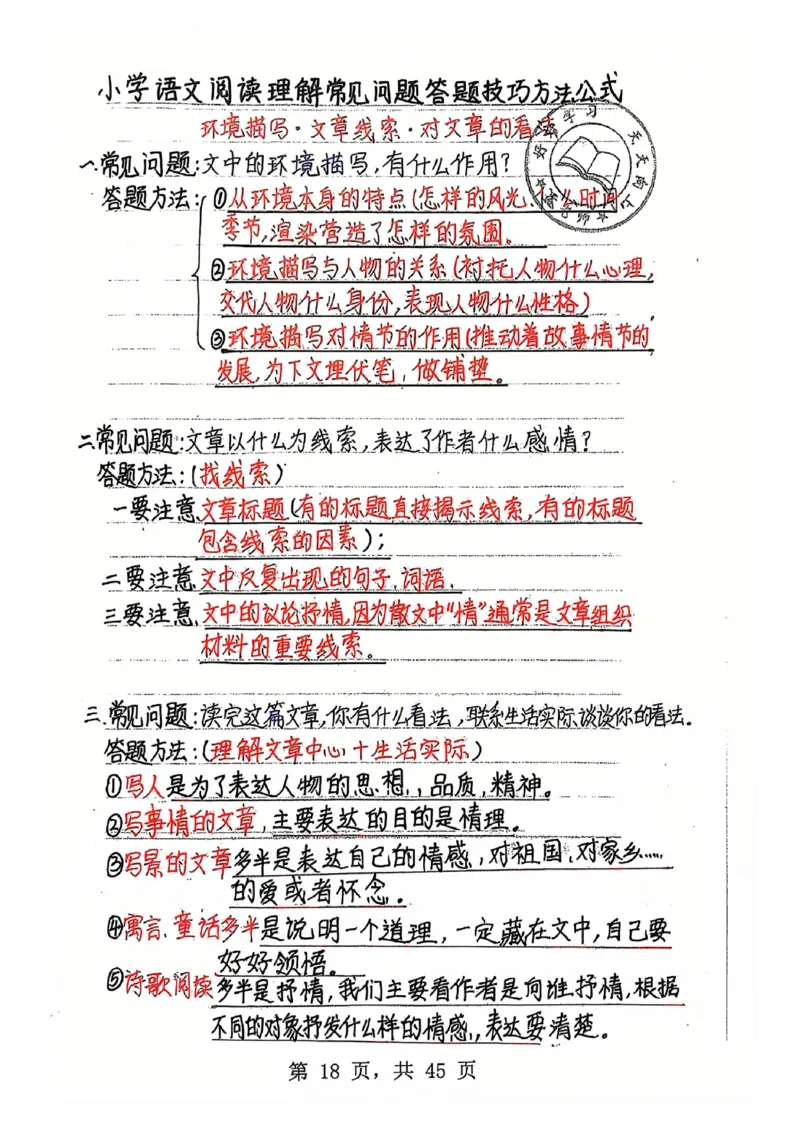 小学语文阅读理解常见问题答题技巧方法公式
环境描写·文章线索·对文章的看法
好 学习 天天向上
一.常见问题:文中的环境描写,有什么作用?
答题方法:①从环境本身的特点(怎样的风光、什么时间
季节,渲染营造了怎样的氛围。
②环境描写与人物的关系(衬托人物什么心理,
交代人物什么身份,表现人物什么性格)
③环境描写对情节的作用(推动着故事情节的
发展,为下文埋伏笔,做铺垫。
二.常见问题:文章以什么为线索,表达了作者什么感情?
答题方法:(找线索)
一要注意文章标题(有的标题直接揭示线索,有的标题
包含线索的因素);
二要注意文中反复出现的句子、词语、
三要注意文中的议论抒情,因为散文中“情”通常是文章组织
材料的重要线索。
三.常见问题:读完这篇文章,你有什么看法,联系生活实际谈谈你的看法。
答题方法:(理解文章中心+生活实际)
①写人是为了表达人物的思想,品质,精神。
②写事情的文章,主要表达的目的是情理。
③写景的文章多半是表达自己的情感,对祖国、对家乡……
的爱或者怀念。
④寓言、童话多半是说明一个道理,一定藏在文中,自己要
好好领悟。
⑤诗歌阅读多半是抒情,我们主要看作者是向谁抒情,根据
不同的对象抒发什么样的情感,表达要清楚。
第 18 页,共 45 页